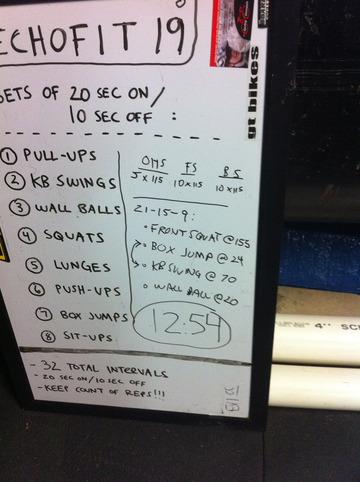 ECHOFIT 19
SETS OF 20 SEC ON/
10 SEC OFF :
① PULL-UPS
② KB SWINGS
③ WALL BALLS
④ SQUATS
⑤ LUNGES
⑥ PUSH-UPS
⑦ BOX JUMPS
⑧ SIT-UPS
OHS FS BS
5 x 115 10 x 115 10 x 115
21-15-9:
• FRONT SQUAT @ 155
• BOX JUMP @ 24
• KB SWING @ 70
• WALL BALL @ 20
12:54
- 32 TOTAL INTERVALS
- 20 SEC ON/10 SEC OFF
- KEEP COUNT OF REPS!!!
gt bikes
4" SC